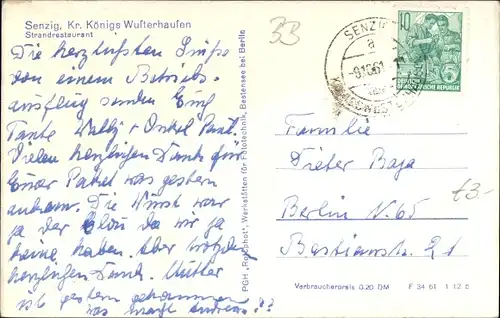 Senzig, Kr. Königs Wusterhausen
Strandrestaurant
Die herzlichsten Grüße
von einem Betriebs-
ausflug senden Euch
Tante Wally + Onkel Paul.
Vielen herzlichen Dank für
Euer Paket was gestern
ankam. Die Wurst war
ja der da wir ja
keine haben. Aber trotzdem
herzlichen Dank. Mutter
ist gestern gekommen
was macht Andreas??
PGH „Rotophot“, Werkstätten für Fototechnik, Bestensee bei Berlin
33
SENZIG
a
10
DEUTSCHE DEMOKRATISCHE REPUBLIK
Familie
Dieter Baja
Berlin N. 65
Bastianstr. 21
£3-
Verbraucherpreis 0.20 DM
F 34 61 1 12 b